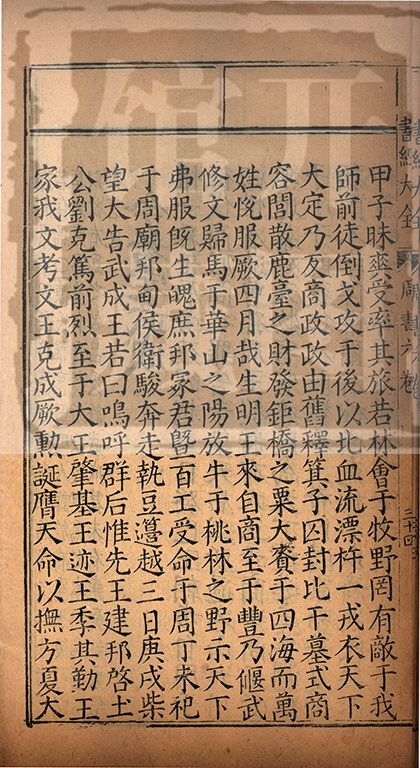 甲子昧爽受率其旅若林會于牧野罔有敵于我
師前徒倒戈攻于後以北血流漂杵一戎衣天下
大定乃反商政政由舊釋箕子囚封比干墓式商
容閭散鹿臺之財發鉅橋之粟大賚于四海而萬
姓悅服厥四月哉生明王來自商至于豐乃偃武
修文歸馬于華山之陽放牛于桃林之野示天下
弗服旣生魄庶邦冢君曁百工受命于周丁未祀
于周廟邦甸侯衛駿奔走執豆籩越三日庚戌柴
望大告武成王若曰嗚呼群后惟先王建邦啓土
公劉克篤前烈至于大王肇基王迹王季其勤王
家我文考文王克成厥勳誕膺天命以撫方夏大